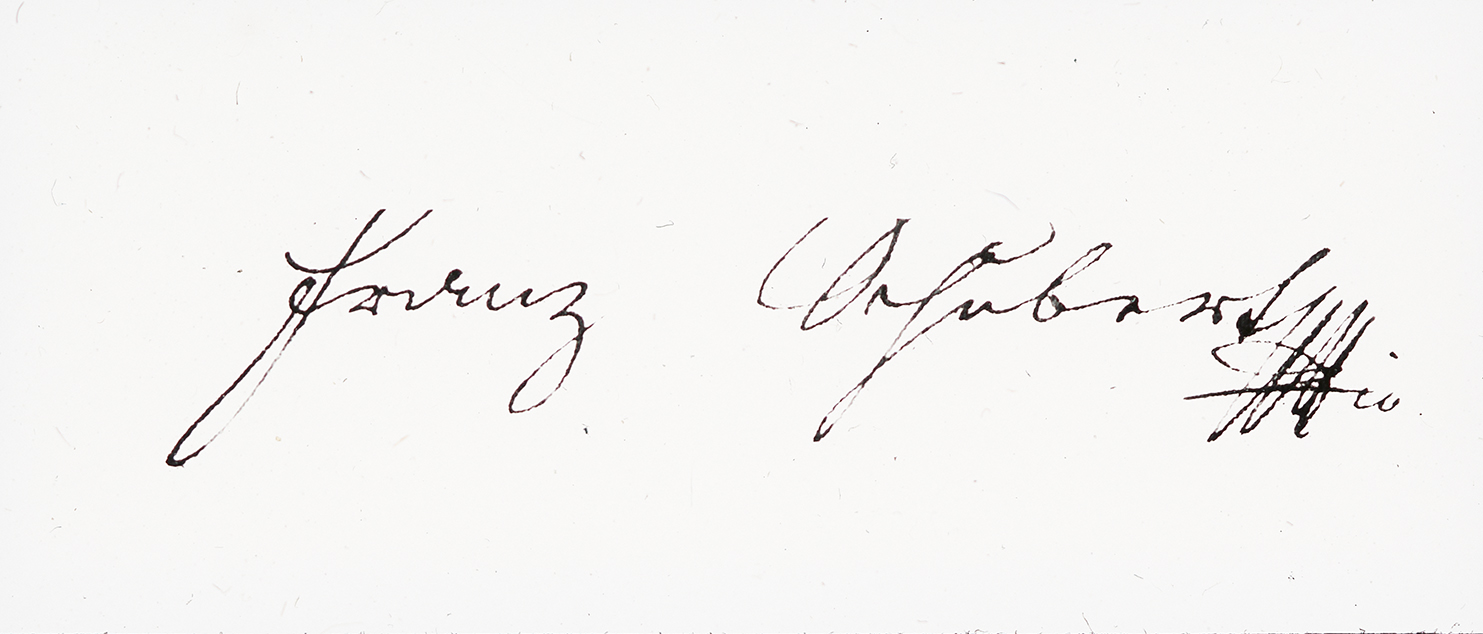 Franz Schubert